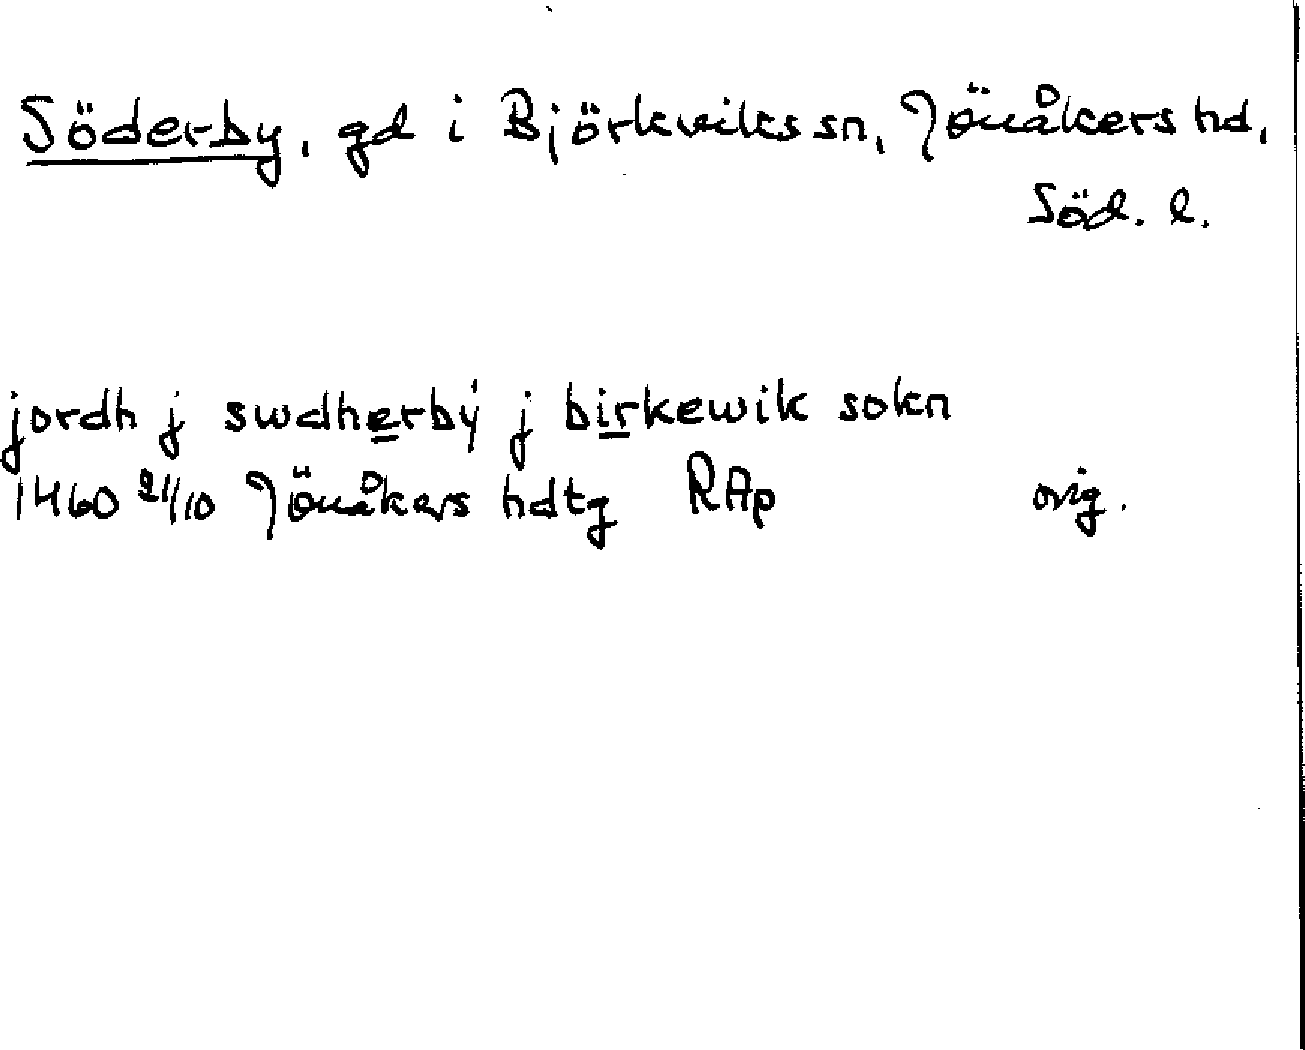 Söderby, gd i Björkviks sn, Jönåkers hd,
Söd. l.
jordh j swdherbẏ j birkewik sokn
1460 21/10 Jönåkers hdtg RAp orig.